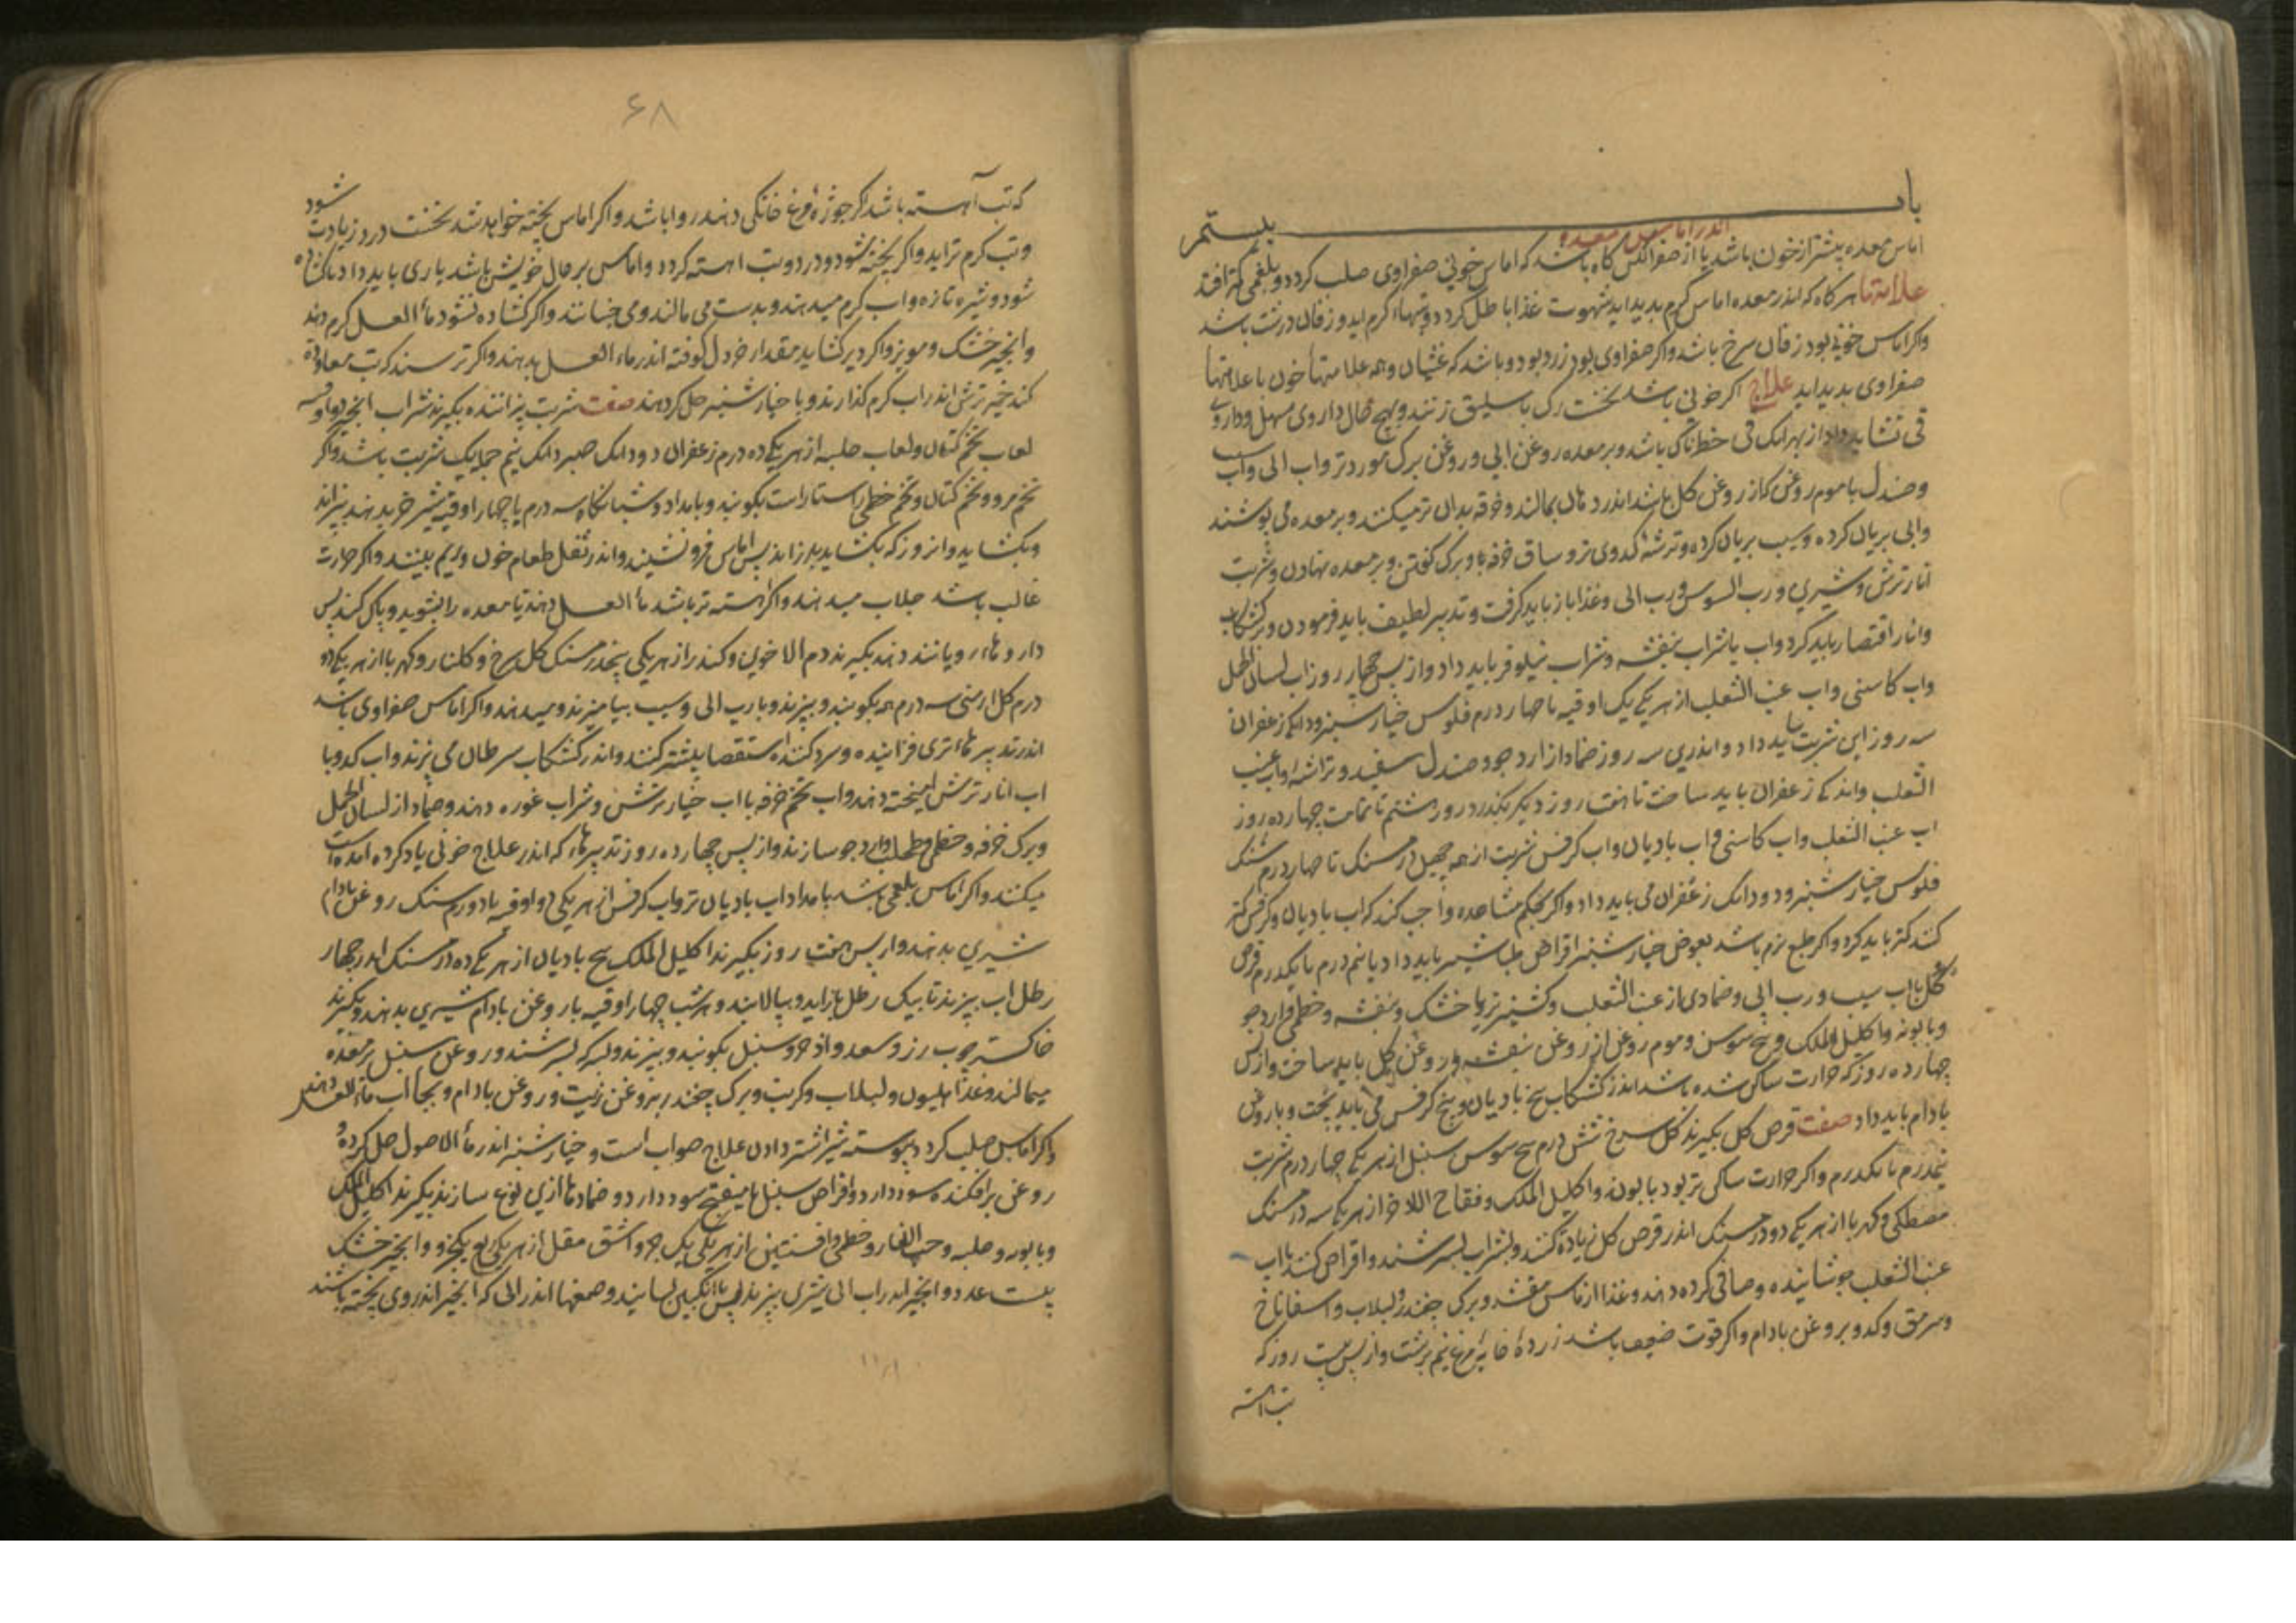 باب بیستم
اندر اماس معده
اماس معده بیشتر از خون باشد یا از صفرا لکن گاه باشد که اماس خونی صفراوی صلب کردد و بلغمی کمتر افتد
علامتها هر کاه که اندر معده اماس گرم بدید اید شهوت غذا باطل کردد و تبهاء گرم اید و زفان درشت باشد
واکر اماس خونی بود زفان سرخ باشد واکر صفراوی بود زرد بود و باشد که غشیان و همه علامتها خون با علامتها
صفراوی بدید اید علاج اکر خونی باشد نخست رک باسلیق زنند و بهیچ حال داروی مسهل و داروی
قی نشاید داد از بهر انک قی خطرناک باشد و بر معده روغن ابی و روغن برک مورد تر و اب ابی و اب سیب
و صندل با موم روغن کز روغن کل باشد اندر هاون بمالند و خرقه بدان تر میکنند و بر معده می پوشند
وابی بریان کرده و سیب بریان کرده و تراشه کدوی تر و ساق خرفه با و برک کوفتن و بر معده نهادن و شربت
انار ترش و شیرین و رب السوس و رب ابی و غذا باز باید کرفت و تدبیر لطیف باید فرمودن و بر کشکاب
وانار اقتصار باید کرد و اب با شراب بنفشه و شراب نیلوفر باید داد و از پس چهار روز اب لسان الحمل
و اب کاسنی و اب عنب الثعلب از هر یکی یک اوقیه با چهار درم فلوس خیار شنبر و دانکی زعفران
سه روز این شربت باید داد و اندرین سه روز ضماد از ارد جو و صندل سفید و تراشه و اب عنب
الثعلب و اندکی زعفران باید ساخت تا هفت روز دیکر بکذرد روز هشتم تا تمامت چهارده روز
اب عنب الثعلب و اب کاسنی و اب بادیان و اب کرفس شربت از همه چهل درمسنک تا چهار درمسنک
فلوس خیار شنبر و دودانک زعفران می باید داد و اکر بحکم مشاهده واجب کند که اب بادیان و کرفس کمتر
کنند کمتر باید کرد و اکر طبع نرم باشد بعوض خیار شنبر اقراص طباشیر باید داد یا نیم درم یا یکدرم قرص
کل با اب سیب و رب ابی و ضمادی از عنب الثعلب و کشنیز تر یا خشک و بنفشه و خطمی و ارد جو
و بابونه و اکلیل الملک و بیخ سوسن و موم روغن از روغن بنفشه و روغن کل باید ساخت و از پس
چهارده روز که حرارت ساکن شده باشد اندر کشکاب بیخ بادیان و بیخ کرفس می باید پخت و با روغن
بادام باید داد صفت قرص کل بکیرند کل سرخ شش درم بیخ سوس سنبل از هر یکی چهار درم شربت
نیمدرم تا یکدرم و اکر حرارت ساکن تر بود بابونه و اکلیل الملک و فقاح الاذخر از هر یکی سه درمسنک
مصطکی و کهربا از هر یکی دو درمسنک اندر قرص کل زیاده کنند و بشراب بسرشند و اقراص کنند با اب
عنب الثعلب جوشانیده و صافی کرده دهند و غذا از ماس مقشر و برک چغندر و لبلاب و اسفاناخ
و سرمق و کدو بروغن بادام و اکر قوت ضعیف باشد زرده خایه مرغ نیم برشت و از پس بیست روز که
تب اهسته
۶۸
که تب آهسته باشد اکر جوژه مرغ خانکی دهند روا باشد و اکر اماس پخته خواهد شد نخست درد زیادت شود
و تب کرم تر اید و اکر پخته شود درد و تب اهسته کردد و اماس بر حال خویش باشد یاری باید داد تا کشاده
شود و شیر تازه و اب کرم میدهند و بدست می مالند و می جنبانند و اکر کشاده نشود ماء العسل کرم دهند
وانجیر خشک و مویز و اکر دیر کشاید مقدار خردل کوفته اندر ماء العسل بدهند و اکر ترسند که تب معاودت
کند خیر ترش اندر اب کرم کذارند و با خیار شنبر حل کرده دهند صفت شربت پزاننده بکیرند شراب انجیر دو اوقیه
لعاب تخم کتان و لعاب حلبه از هر یکی ده درم زعفران دو دانک صبر دانک نیم جمله یک شربت باشد و اکر
تخم مرو و تخم کتان و تخم خطمی راستاراست بکوبند و بامداد و شبانکاه سه درم با چهار اوقیه شیر خر بدهند بپزاند
و بکشاید و انروز که بکشاید بلرزاند پس اماس فرو نشیند و اندر ثفل طعام خون و ریم بینند و اکر حرارت
غالب باشد جلاب میدهند و اکر اهسته تر باشد ماء العسل دهند تا معده را بشوید و پاک کند پس
داروهاء رویاننده دهند بکیرند دم الاخوین و کندر از هر یکی پنج درمسنک کل سرخ و کلنار و کهربا از هر یکی دو
درم کل ارمنی سه درم همه بکوبند و ببیزند و با رب ابی و سیب بیامیزند و میدهند و اکر اماس صفراوی باشد
اندر تدبیرهاء تری فزاینده و سرد کننده استقصا بیشتر کنند و اندر کشکاب سرطان می پزند و اب کدو با
اب انار ترش امیخته دهند و اب تخم خرفه با اب خیار ترش و شراب غوره دهند و ضماد از لسان الحمل
و برک خرفه و خطمی و طحلب و ارد جو سازند و از پس چهارده روز تدبیرهاء که اندر علاج خونی یاد کرده امده است
میکنند و اکر اماس بلغمی باشد بامداد اب بادیان تر و اب کرفس از هر یکی دو اوقیه با دو درمسنک روغن بادام
شیرین بدهند و از پس هفت روز بکیرند اکلیل الملک بیخ بادیان از هر یکی ده درمسنک اندر چهار
رطل اب بپزند تا بیک رطل باز اید و بپالایند و هر شب چهار اوقیه با روغن بادام شیرین بدهند و بکیرند
خاکستر چوب رز و سعد و اذخر و سنبل بکوبند و ببیزند و بسرکه بسرشند و روغن سنبل بر معده
میمالند و غذا هلیون و لبلاب و کرنب و برک چغندر بروغن زیت و روغن بادام و بجا اب ماء العسل دهند
و اکر اماس صلب کردد پیوسته شیر اشتر دادن علاج صواب است و خیار شنبر اندر ماء الاصول حل کرده و
روغن بر افکنده سود دارد و اقراص سنبل با میفختج سود دارد و ضمادها ازین نوع سازند بکیرند اکلیل الملک
و بابونه و حلبه و حب الغار و خطمی و افسنتین از هر یکی یک جزو اشق مقل از هر یکی ربع یکجزو و انجیر خشک
بیست عدد و انجیر اندر اب ابی شیرین بپزند پس با انکبین بسایند و صمغها اندر ابی که انجیر اندر وی پخته باشند